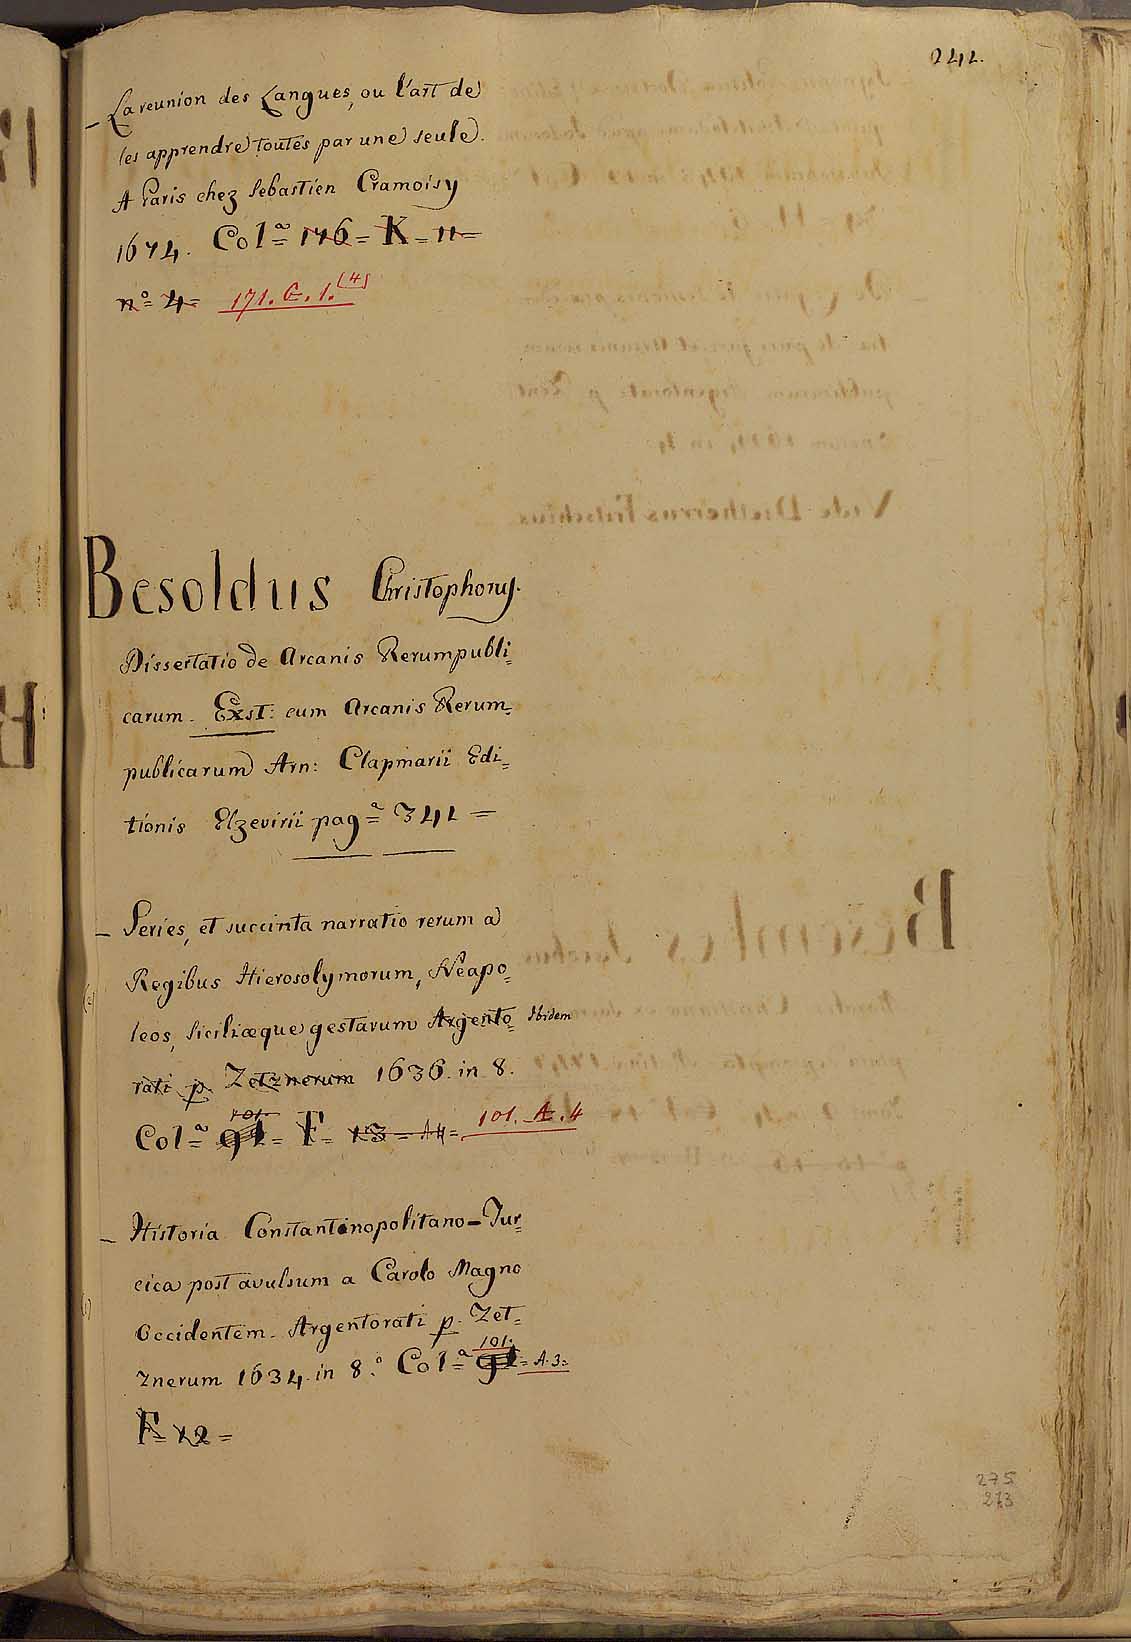 242.
– La reunion des Langues, ou l'art de
les apprendre toutes par une seule.
A Paris chez Sebastien Cramoisy
1674. Col.ª 176 = K = 11 =
n.º 4 = 171. G. 1. (4)
Besoldus Christophorus.
Dissertatio de Arcanis Rerumpubli=
carum. Exst: cum Arcanis Rerum=
publicarum Arn: Clapmarii Edi=
tionis Elzevirii pag.ª 341 =
– Series, et succinta narratio rerum a
Regibus Hierosolymorum, Neapo=
(2)
leos, Siciliæque gestarum Argento= Ibidem
rati p. Zetznerum 1636. in 8.
101.
Col.ª 91 = F = 13 = A4 = 101. A. 4
– Historia Constantinopolitano-Tur=
cica post avulsum a Carolo Magno
(1)
Occidentem. Argentorati p. Zet=
101.
znerum 1634. in 8.º Col.ª 91 = A. 3 =
F = 12 =
275
273